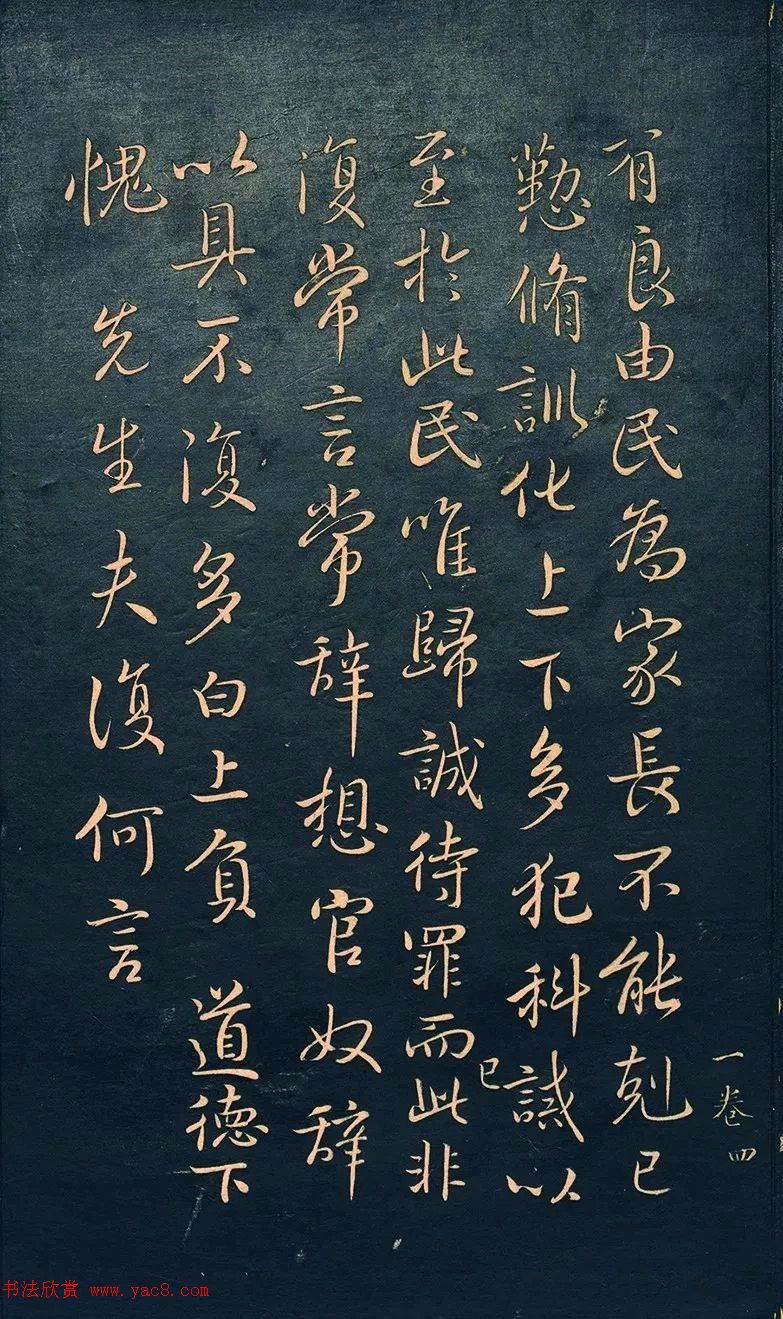 有良由民為家長不能剋己
懃脩訓化上下多犯科誡以
至於此民唯歸誠待罪而此非
復常言常辭想官奴辭
以具不復多白上負 道德下
愧 先生夫復何言
己
一卷 四
书法欣赏 www.yac8.com